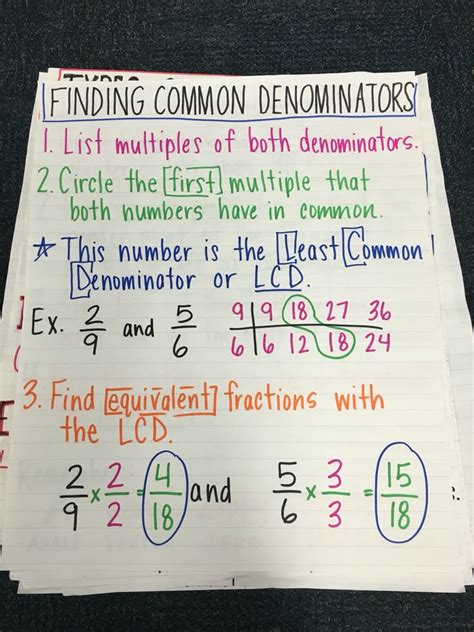 FINDING COMMON DENOMINATORS
1. List multiples of both denominators.
2. Circle the first multiple that
both numbers have in common.
☆ This number is the Least Common
Denominator or LCD.
Ex. 2/9 and 5/6
9 | 9 18 27 36
6 | 6 12 18 24
3. Find equivalent fractions with
the LCD.
2/9 × 2/2 = 4/18 and 5/6 × 3/3 = 15/18